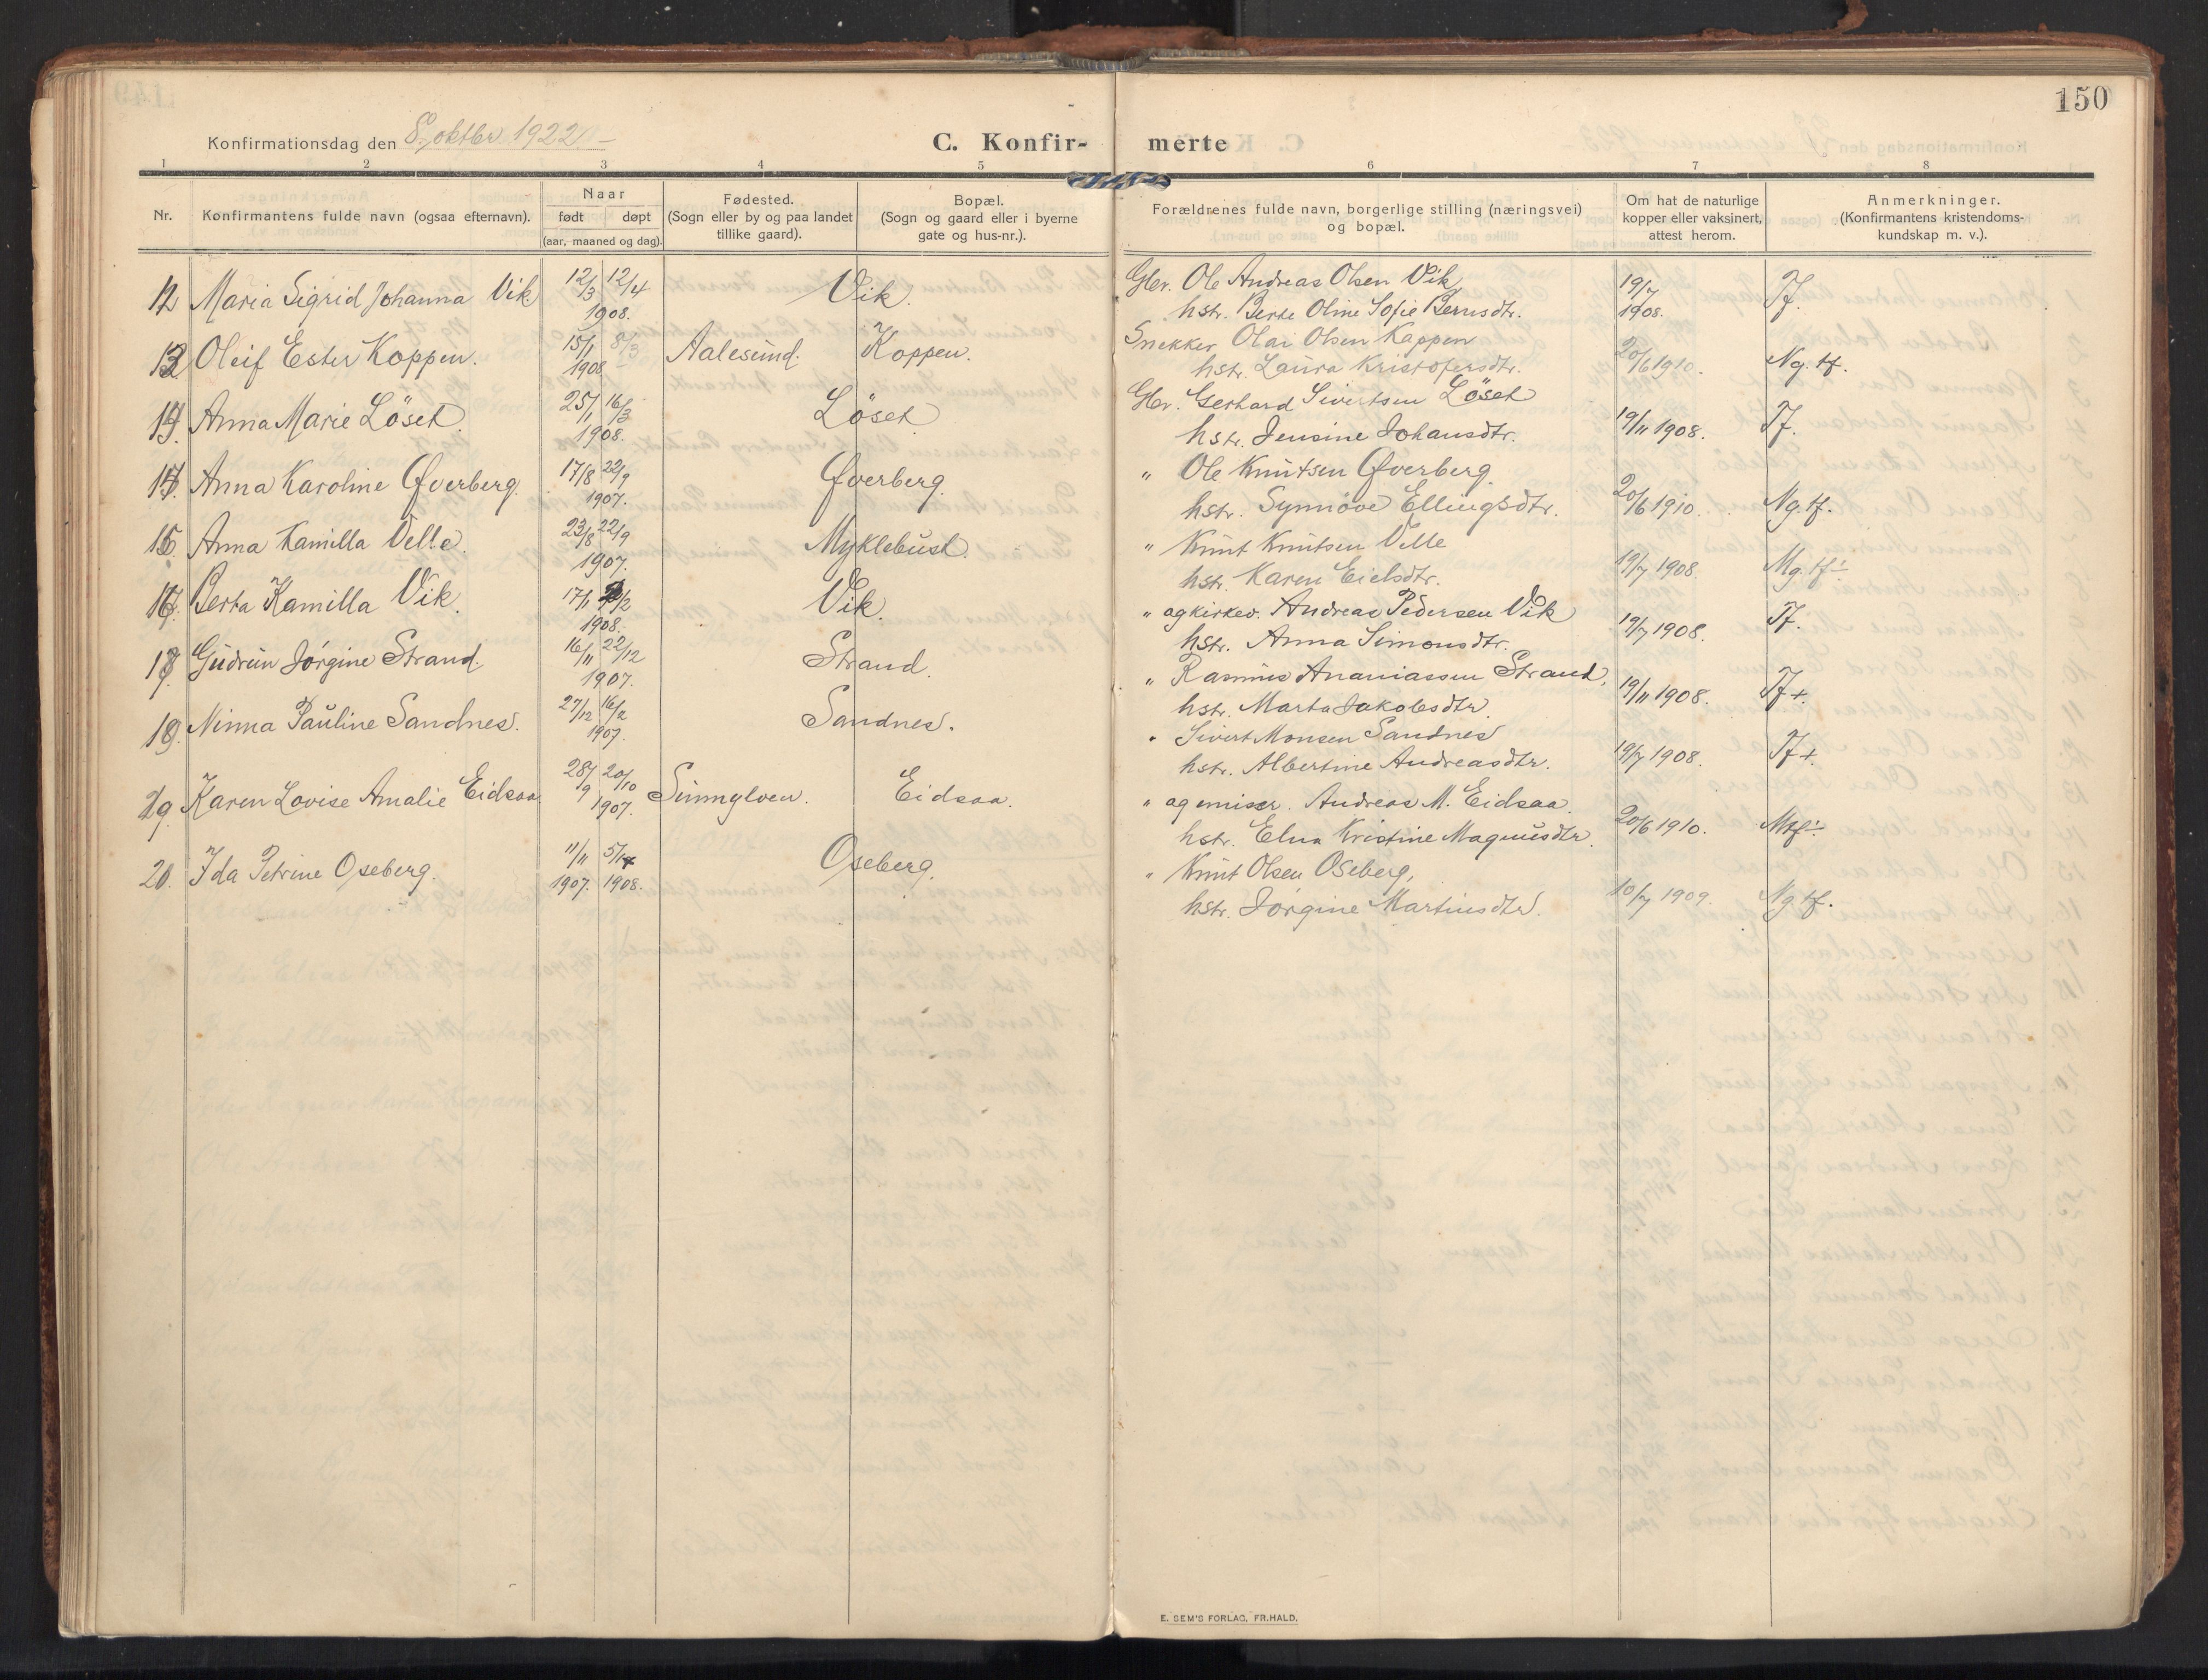 150
Konfirmationsdag den 8. oktbr 1922
C. Konfirmerte
1 2 3 4 5 6 7 8
Nr.
Konfirmantens fulde navn (ogsaa efternavn).
Naar
født døpt
(aar, maaned og dag).
Fødested.
(Sogn eller by og paa landet
tillike gaard).
Bopæl.
(Sogn og gaard eller i byerne
gate og hus-nr.).
Forældrenes fulde navn, borgerlige stilling (næringsvei)
og bopæl.
Om hat de naturlige
kopper eller vaksinert,
attest herom.
Anmerkninger.
(Konfirmantens kristendoms-
kundskap m. v.).
12 Maria Sigrid Johanna Vik 12/3 12/4 1908. Vik. Gbr. Ole Andreas Olsen Vik 19/7 1908. Tf.
hstr. Berte Oline Sofie Bernsdtr.
13. Oleif Ester Koppen. 15/1 8/3 1908 Aalesund. Koppen. Snekker Olai Olsen Koppen 20/6 1910. Ng. tf.
hstr. Laura Kristofersdtr.
14. Anna Marie Löset. 25/1 16/3 1908. Löset Gbr. Gerhard Sivertsen Löset 19/11 1908. Tf.
hstr. Jensine Johansdtr.
Anna Karoline Øverberg. 17/8 22/9 1907. Øverberg. " Ole Knutsen Øverberg. 20/6 1910. Ng. tf.
hstr. Synnöve Ellingsdtr.
15. Anna Kamilla Velle. 23/8 22/9 1907. Myklebust. " Knut Knutsen Velle 19/7 1908. Mg. tf÷
hstr. Karen Eielsdtr.
16. Berta Kamilla Vik. 17/1 1908. Vik. " og kirkev. Andreas Pedersen Vik 19/7 1908. Tf.
hstr. Anna Simonsdtr.
Gudrun Jörgine Strand. 16/11 22/12 1907. Strand. " Rasmus Ananiassen Strand, 19/11 1908. Tf+
hstr. Marta Jakobsdtr.
Ninna Pauline Sandnes. 27/12 16/2 1907. Sandnes. " Sivert Monsen Sandnes 19/7 1908. Tf+.
hstr. Albertine Andreasdtr.
19. Karen Lovise Amalie Eidsaa. 28/9 20/10 1907. Sunnylven. Eidsaa. " og emisær. Andreas M. Eidsaa. 20/6 1910. Mtf÷
hstr. Elna Kristine Magnusdtr.
20. Ida Petrine Oseberg. 11/11 1907. 1908. Oseberg. " Knut Olsen Oseberg, 10/7 1909. Ng. tf.
hstr. Jörgine Martinsdtr.
E. SEM'S FORLAG, FR.HALD.